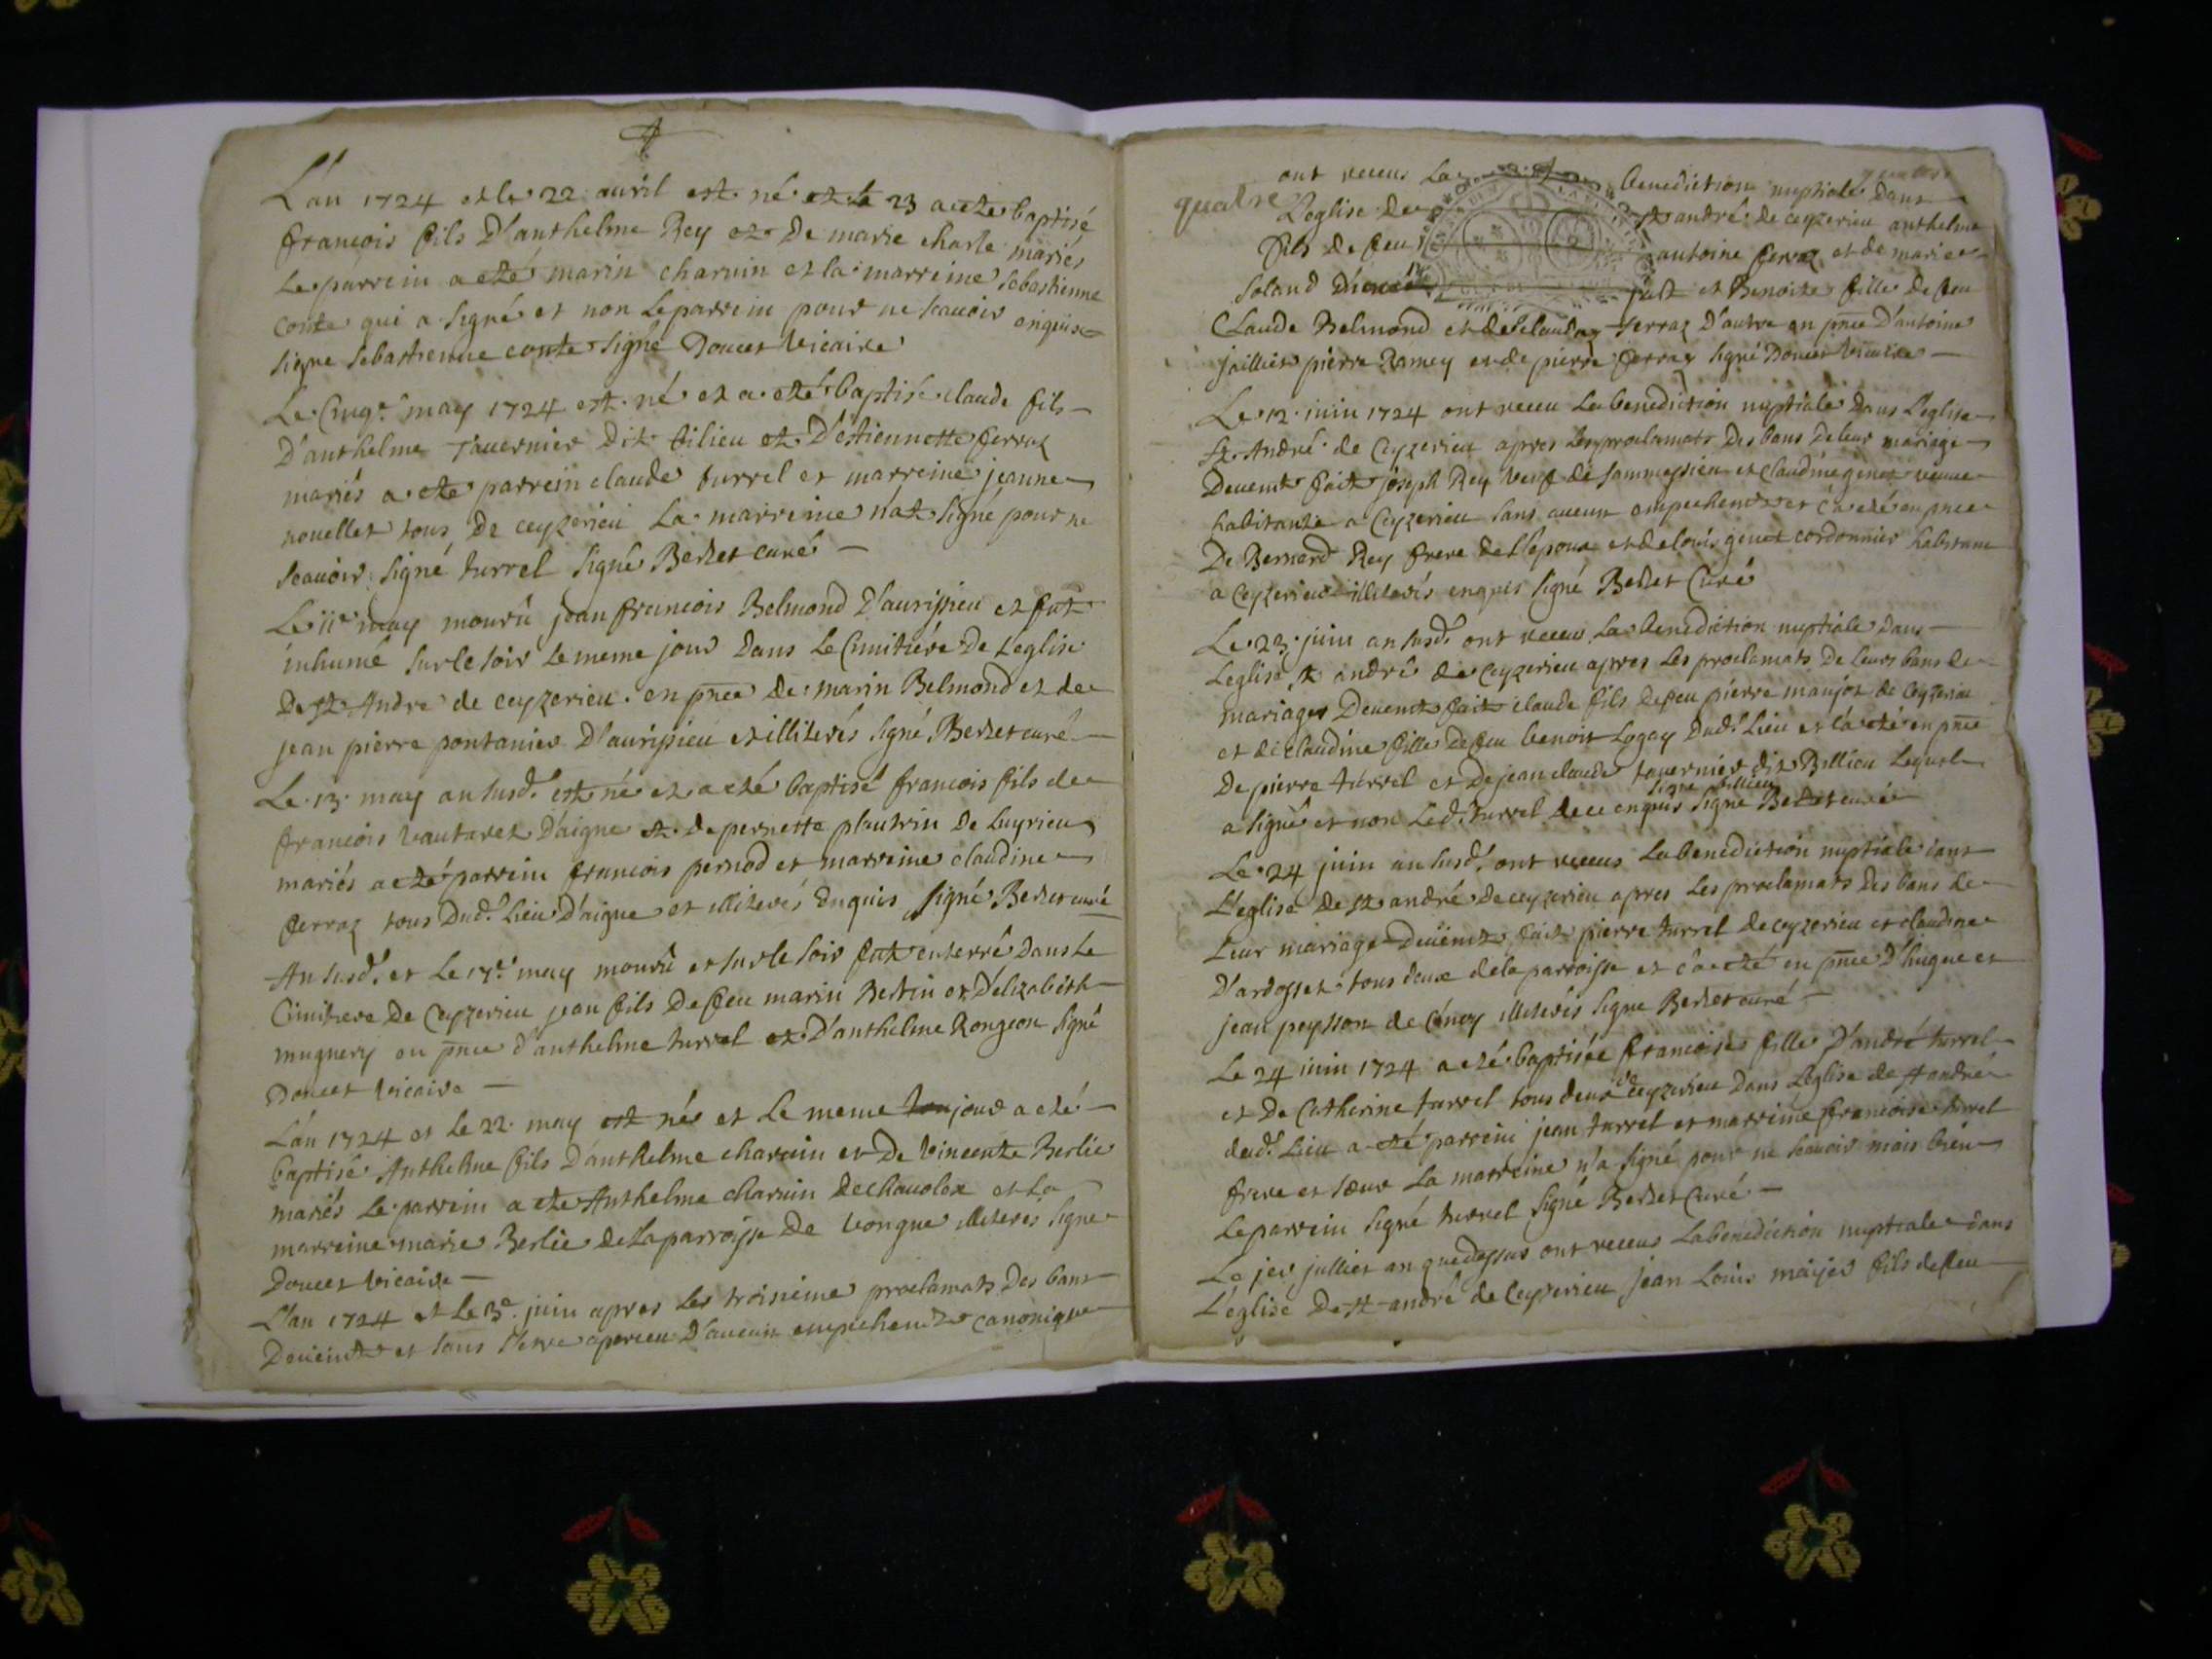 L'an 1724 et le 22 avril est né et le 23 a eté baptisé
francois fils D'anthelme Rey et De marie charle mariés
Le parrein a eté marin charuin et la marreine sebastienne
conte qui a signé et non Le parrein pour ne scauoir enquis
signe sebastienne conte signé Doucet vicaire
Le Cinq.e may 1724 est né et a eté baptisé claude fils
D'anthelme Tauernier Dit bilieu et D'estiennette ferraz
mariés a eté parrein claude turrel et marreine jeanne
nouellet tous De ceyzerieu La marreine n'at signé pour ne
scauoir signé turrel signé Berlet curé
Le 11e may mourû jean francois Belmond D'aurissieu et fut
inhumé sur le soir Le meme jour Dans Le Cimitiére De Leglise
De st Andre de ceyzerieu en pnce De marin Belmond et de
jean pierre pontanier D'aurissieu et illiterés signé Berlet curé
Le 13 may an susd.t est né et a eté baptisé francois fils de
francois vautaret D'aigne et de pernette plautrin De Luyrieu
mariés a eté parrein francois pernod et marreine claudine
ferraz tous Dud.t Lieu D'aigne et illiterés Enquis signé Berlet curé
An susd.t et Le 17.e may mourû et sur le soir fut enterré Dans Le
Cimitiere De Ceyzerieu jean fils De feu marin Bertin et D'elizabeth
mugnery en pnce d'anthelme turrel et D'anthelme Rongeon signé
Doucet vicaire
L'an 1724 et Le 22 may est nés et Le meme jour a eté
baptisé Anthelme fils D'anthelme charuin et De vincente Berlie
mariés Le parrein a ete Anthelme charuin De chauolex et La
marreine marie Berlie de La parroisse De vongne illiteres signe
Doucet vicaire
L'an 1724 et Le 3e juin apres Les troisieme proclamats Des bans
Deuemt et sans s'etre aperceu D'aucun empechemt canonique
quatre
ont receus La benediction nuptiale Dans
L'eglise De st andré de ceyzerieu anthelme
fils de feu antoine ferraz et de marie
Soland D'une part et Benoite fille De feu
Claude Belmond et de Clauda ferraz D'autre en pnce D'antoine
jaillier pierre Ramey et de pierre ferraz signé Doucet vicaire
Le 12 iuin 1724 ont receu La benediction nuptiale Dans L'eglise
st André de Ceyzerieu apres Les proclamats Des bans De leur mariage
Deuemt fait joseph Rey veuf de sammeysieu et claudine genet veuue
habitante a Ceyzerieu sans aucun empechemt et c'a eté en pnce
De Bernard Rey frere de L'epoux et de louis genet cordonnier habitant
a Ceyzerieu illiterés enquis signé Berlet Curé
Le 23 juin an susd.t ont receus La benediction nuptiale Dans
Leglise st andré de ceyzerieu apres Les proclamats De Leurs bans de
mariages Deuemt fait claude fils De feu pierre manjot de Ceyzerieu
et de claudine fille De feu benoit Logay Dud.t Lieu et c'a eté en pnce
De pierre turrel et De jean claude tauernier dit Billieu Lequel
signe billieu
a signé et non Led.t turrel de ce enquis signé Berlet curé
Le 24 juin an susd.t ont receus La benediction nuptiale dans
L'eglise De st andré De ceyzerieu apres Les proclamats Des bans de
Leur mariage Deuëmt fait pierre turrel de ceyzerieu et claudine
D'ardosset tous deux de la parroisse et c'a eté en pnce D'hugue et
jean peysson de Cucey illiterés signe Berlet curé
Le 24 iuin 1724 a eté baptisée francoise fille D'andré turrel
et De Catherine turrel tous deux de Ceyzerieu Dans L'eglise de st andré
dud.t Lieu a eté parrein jean turrel et marreine francoise turrel
frere et soeur La marreine n'a signé pour ne scauoir mais bien
Le parrein signé turrel signé Berlet Curé
Le jer jullier an quedessus ont receus La benediction nuptiale dans
L'eglise De st andré de Ceyzerieu jean Louis maijer fils de feu